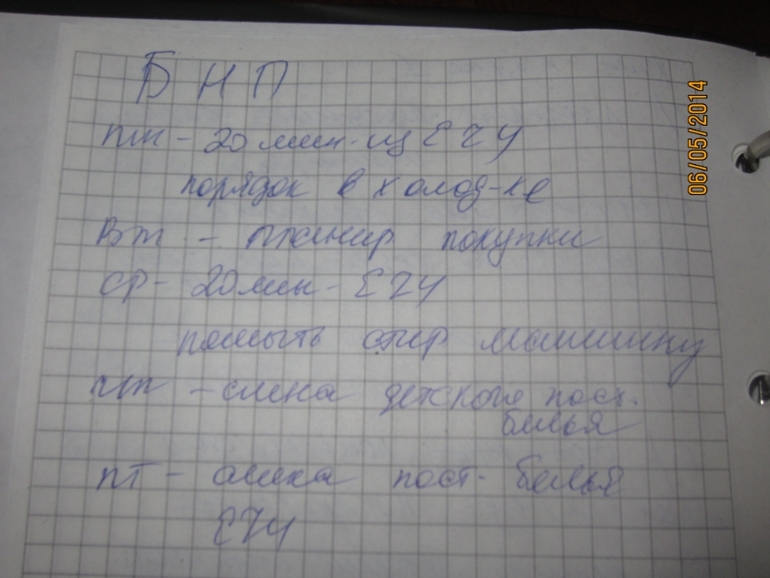 БНП
пн - 20 мин - из ЕЧУ
порядок в холод-ке
Вт - планир покупки
ср - 20 мин - ЕЧУ
помыть стир машинку
чт - смена детского пост.
белья
пт - смена пост. белья
ЕЧУ
06/05/2014